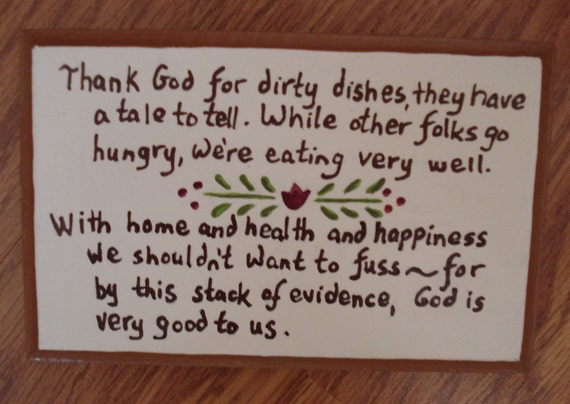 Thank God for dirty dishes, they have
a tale to tell. While other folks go
hungry, we're eating very well.
With home and health and happiness
we shouldn't want to fuss~for
by this stack of evidence, God is
very good to us.